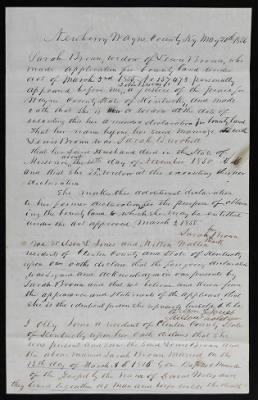 Newberry Wayne County Ky May 20th 1856
Sarah Brown, widow of Lewis Brown, who
made application for bounty land under
act of March 3rd 1855 No 157,473 personally
appeared before me, a Justice of the peace for
Wayne County State of Kentucky, and made
oath that she is a widow at the day of
executing this her amended declaration for bounty land
That her name before her said marriage
was Sarah Burchett
that her said Husband died in the State of
Missouri, the 10th day of November 1850
and that she is widow at the executing this
declaration
She makes this additional declaration
to her former declaration for the purpose of obtain
ing the bounty land to which she may be entitled
under the act approved March 3 1855
Sarah Brown
We, Jones and
resident of Clinton County State of Kentucky
upon our oaths declare that the foregoing declaration
was signed and acknowledged in our presents by
Sarah Brown and that we believe and from
the appearance and statements of the applicant that
she is the identical person she represents herself to be
I Olly Jones a resident of Clinton County State
of Kentucky upon her oath declares that she
was present and saw the said Lewis Brown and
the above named Sarah Brown Married on the
day of March
of the Gospel by the name of and
they lived together as man and wife untill the death